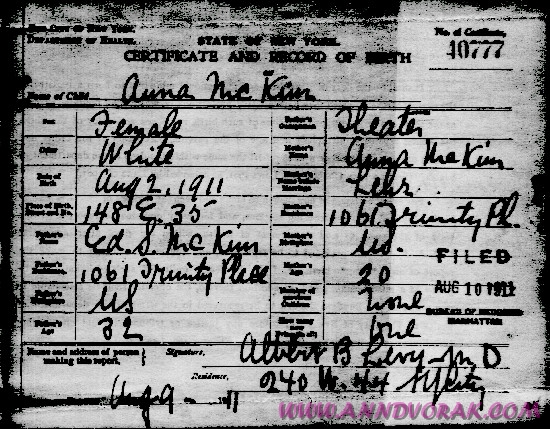 The City of New York.
Department of Health.
STATE OF NEW YORK.
No. of Certificate,
10777
CERTIFICATE AND RECORD OF BIRTH
Name of Child Anna Mc Kim
Sex Female Father's Occupation Theater
Color White Mother's Name Anna McKim
Date of Birth Aug 2, 1911 Mother's Name before Marriage Lehr
Place of Birth, Street and No. 148 E. 35 Mother's Residence 1061 Trinity Pl.
Father's Name Ed. S. Mc Kim Mother's Birthplace US.
Father's Residence, 1061 Trinity Place Mother's Age 20
Father's US Number of previous Children None
Father's Age 32 How many now one
FILED
AUG 10 1911
BUREAU OF RECORDS
MANHATTAN
Name and address of person making this report. Signature, Albert B Levy M D
Residence, 240 W. 44 NY City
Aug 9 1911
WWW.ANNDVORAK.COM